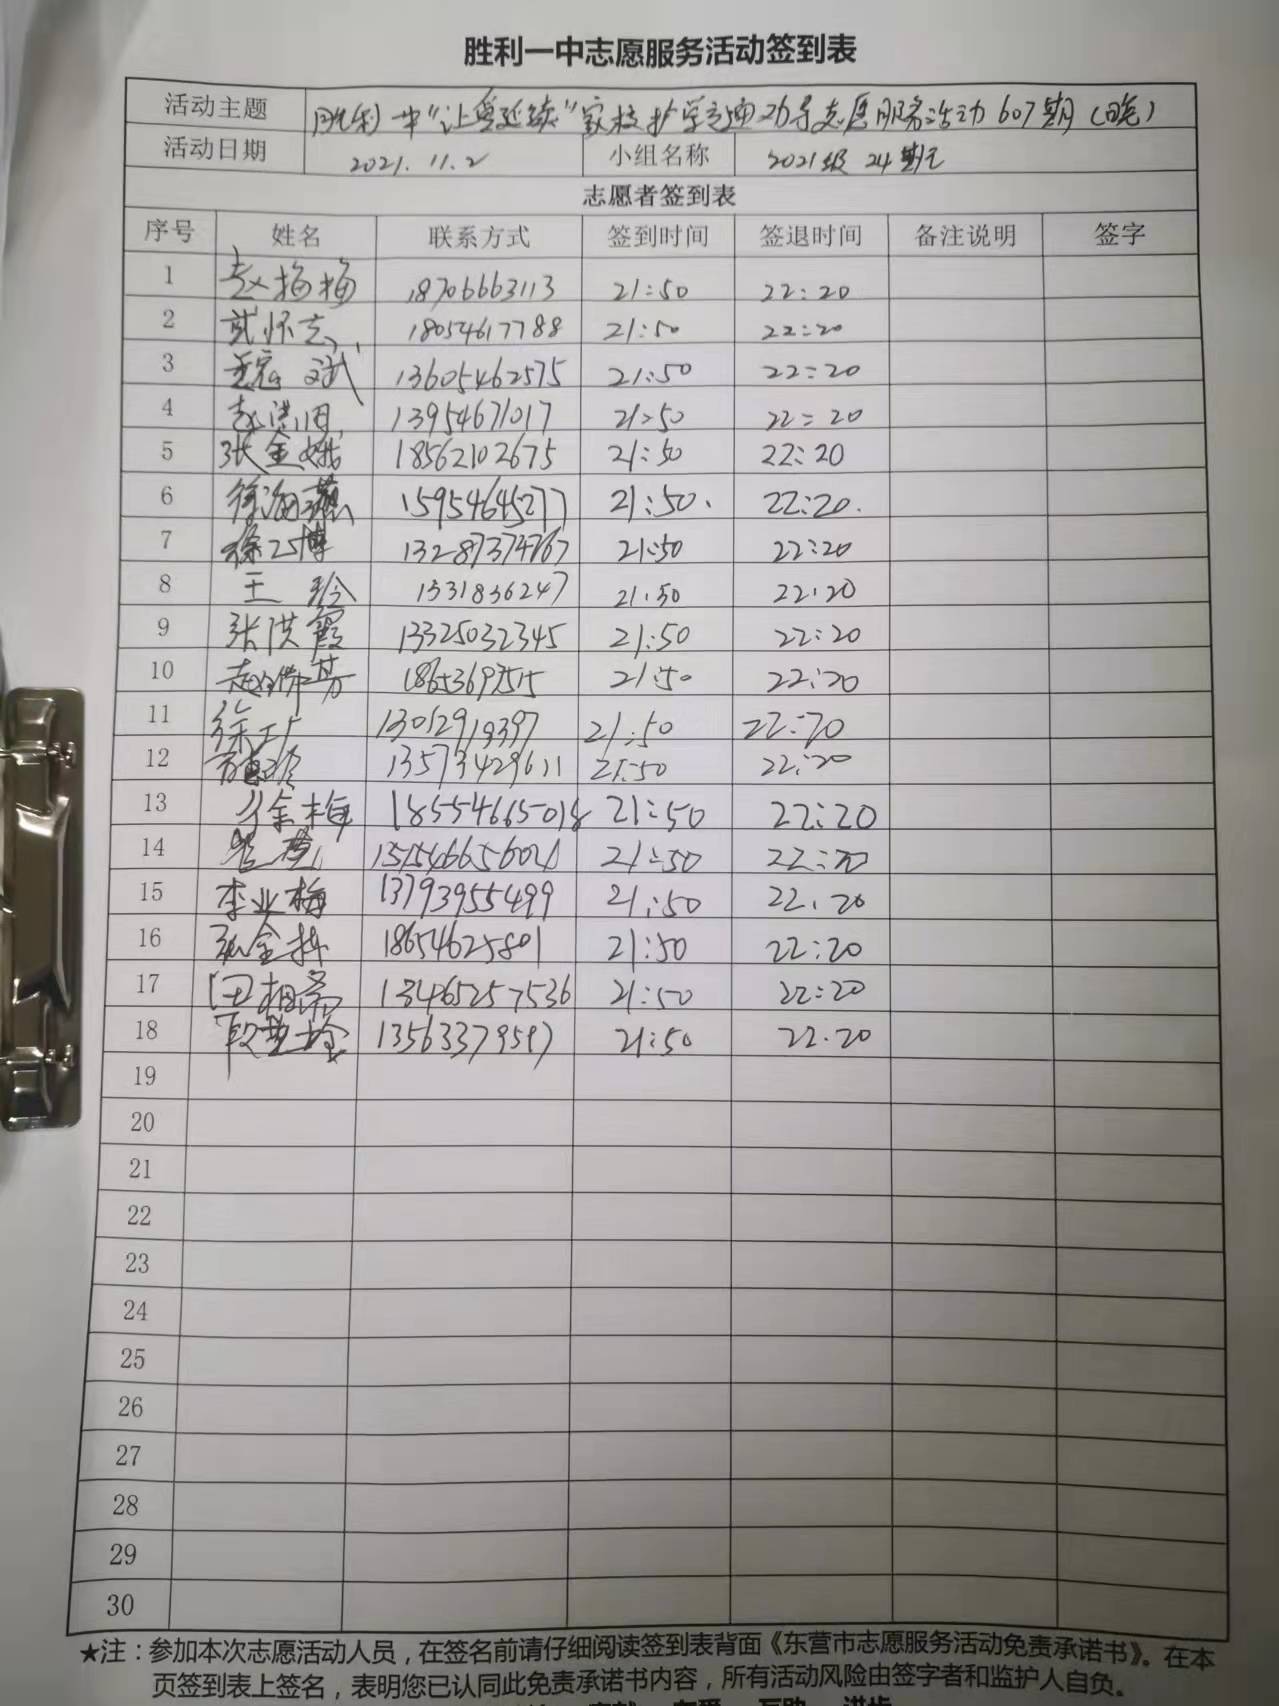 胜利一中志愿服务活动签到表
活动主题 胜利一中“让爱延续”家校护学交通劝导志愿服务活动607期(晚)
活动日期 2021.11.2 小组名称 2021级24
志愿者签到表
序号 姓名 联系方式 签到时间 签退时间 备注说明 签字
1 赵梅梅 18706663113 21:50 22:20
2 18054617788 21:50 22:20
3 13605462575 21:50 22:20
4 13954671017 21:50 22:20
5 张金娥 18562102675 21:50 22:20
6 徐海燕 15954645277 21:50. 22:20.
7 13287374767 21:50 22:20
8 王玲 1331836247 21:50 22:20
9 张洪霞 13325032345 21:50 22:20
10 21:50 22:20
11 21:50 22:20
12 13573429611 21:50 22:20
13 徐梅 18554665018 21:50 22:20
14 21:50 22:20
15 李业梅 13793955499 21:50 22.20
16 18654625801 21:50 22:20
17 田相斋 18465257536 21:50 22:20
18 13563379597 21:50 22.20
19
20
21
22
23
24
25
26
27
28
29
30
★注：参加本次志愿活动人员，在签名前请仔细阅读签到表背面《东营市志愿服务活动免责承诺书》。在本
页签到表上签名，表明您已认同此免责承诺书内容，所有活动风险由签字者和监护人自负。